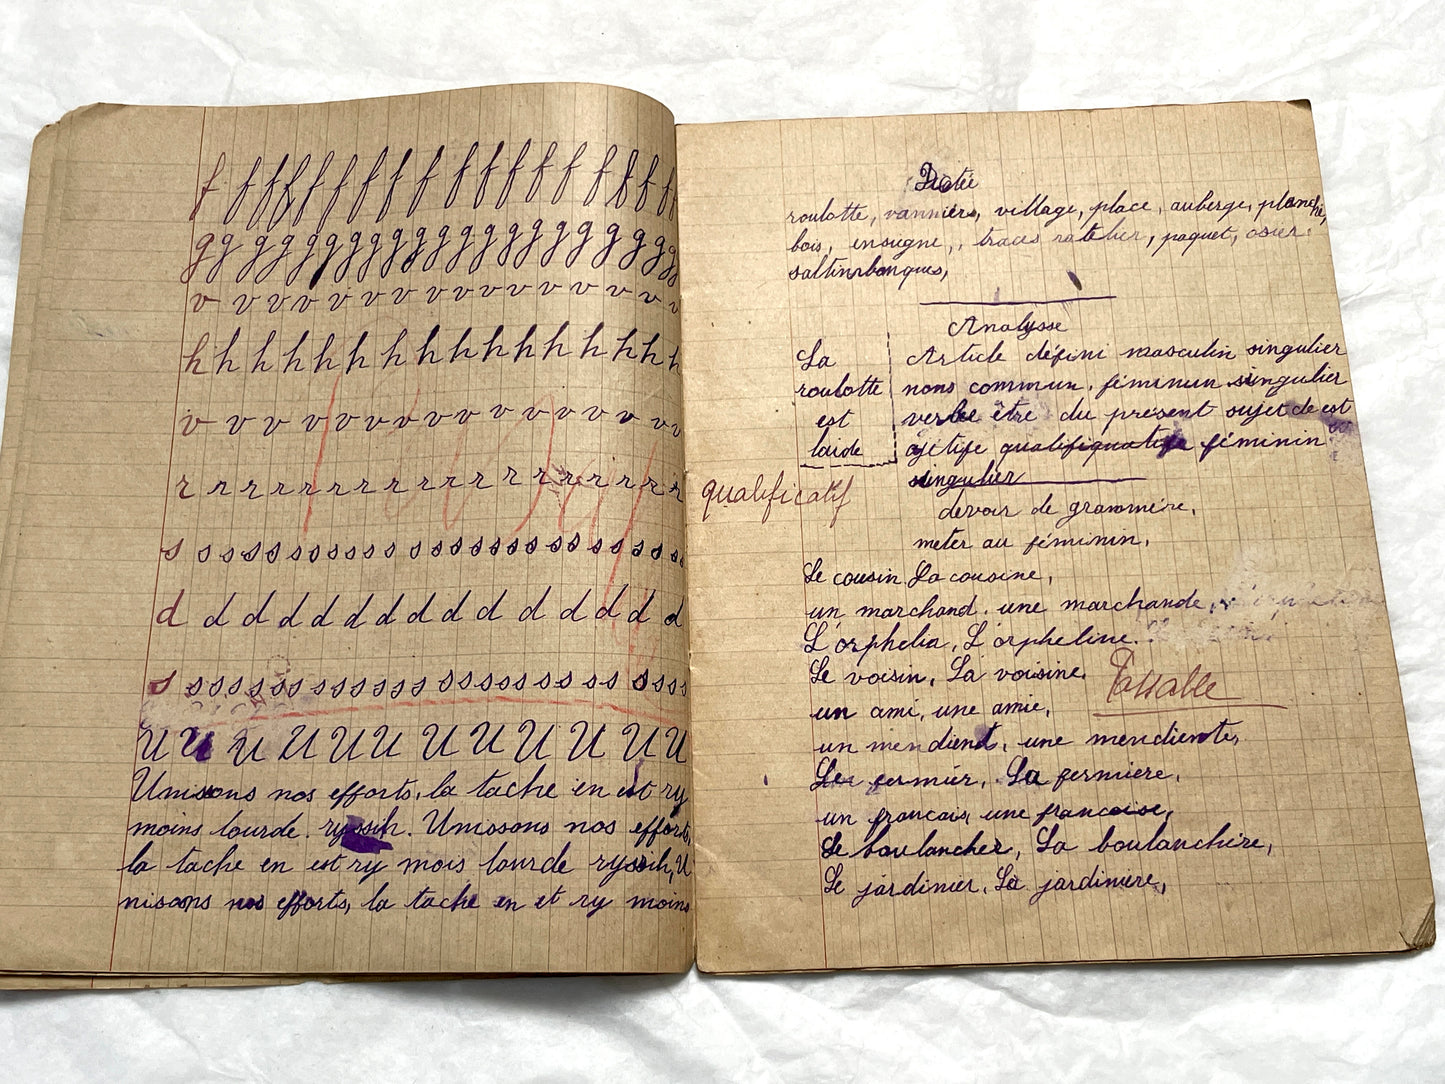 f f f f f f f f f f f f f f f f f f f
g g g g g g g g g g g g g g g g g g g g g g
v v v v v v v v v v v v v v v v v
h h h h h h h h h h h h h h h h
v v v v v v v v v v v v v v v v v
r r r r r r r r r r r r r r r r r r
s s s s s s s s s s s s s s s s s s s s s s s
d d d d d d d d d d d d d d
s s s s s s s s s s s s s s s s s s s s s s s
U U U U U U U U U U U U
Unissons nos efforts, la tache en est ry
moins lourde. ryssih. Unissons nos efforts,
la tache en est ry mois lourde ryssih, U
nisons nos efforts, la tache en et ry moins
Dictée
roulotte, vanniers, village, place, auberge, planche,
bois, ensugne, traces ratelier, paquet, osier.
saltinbanques,
Analysse
La Article défini masculin singulier
roulotte nons commun. féminun singulier
est verbe être du présent sujet de est
laide ajetife qualifiquatife féminin
singulier
qualificatif
devoir de grammère,
meter au féminin,
Le cousin La cousine,
un marchand. une marchande,
L'orphelia, L'orpheline.
Le voisin, La voisine.
Passable
un ami, une amie,
un mendient, une mendiente,
Le fermier, La fermiere,
un francais, une francaise,
Le boulancher, La boulanchère,
Le jardinier, La jardiniere,